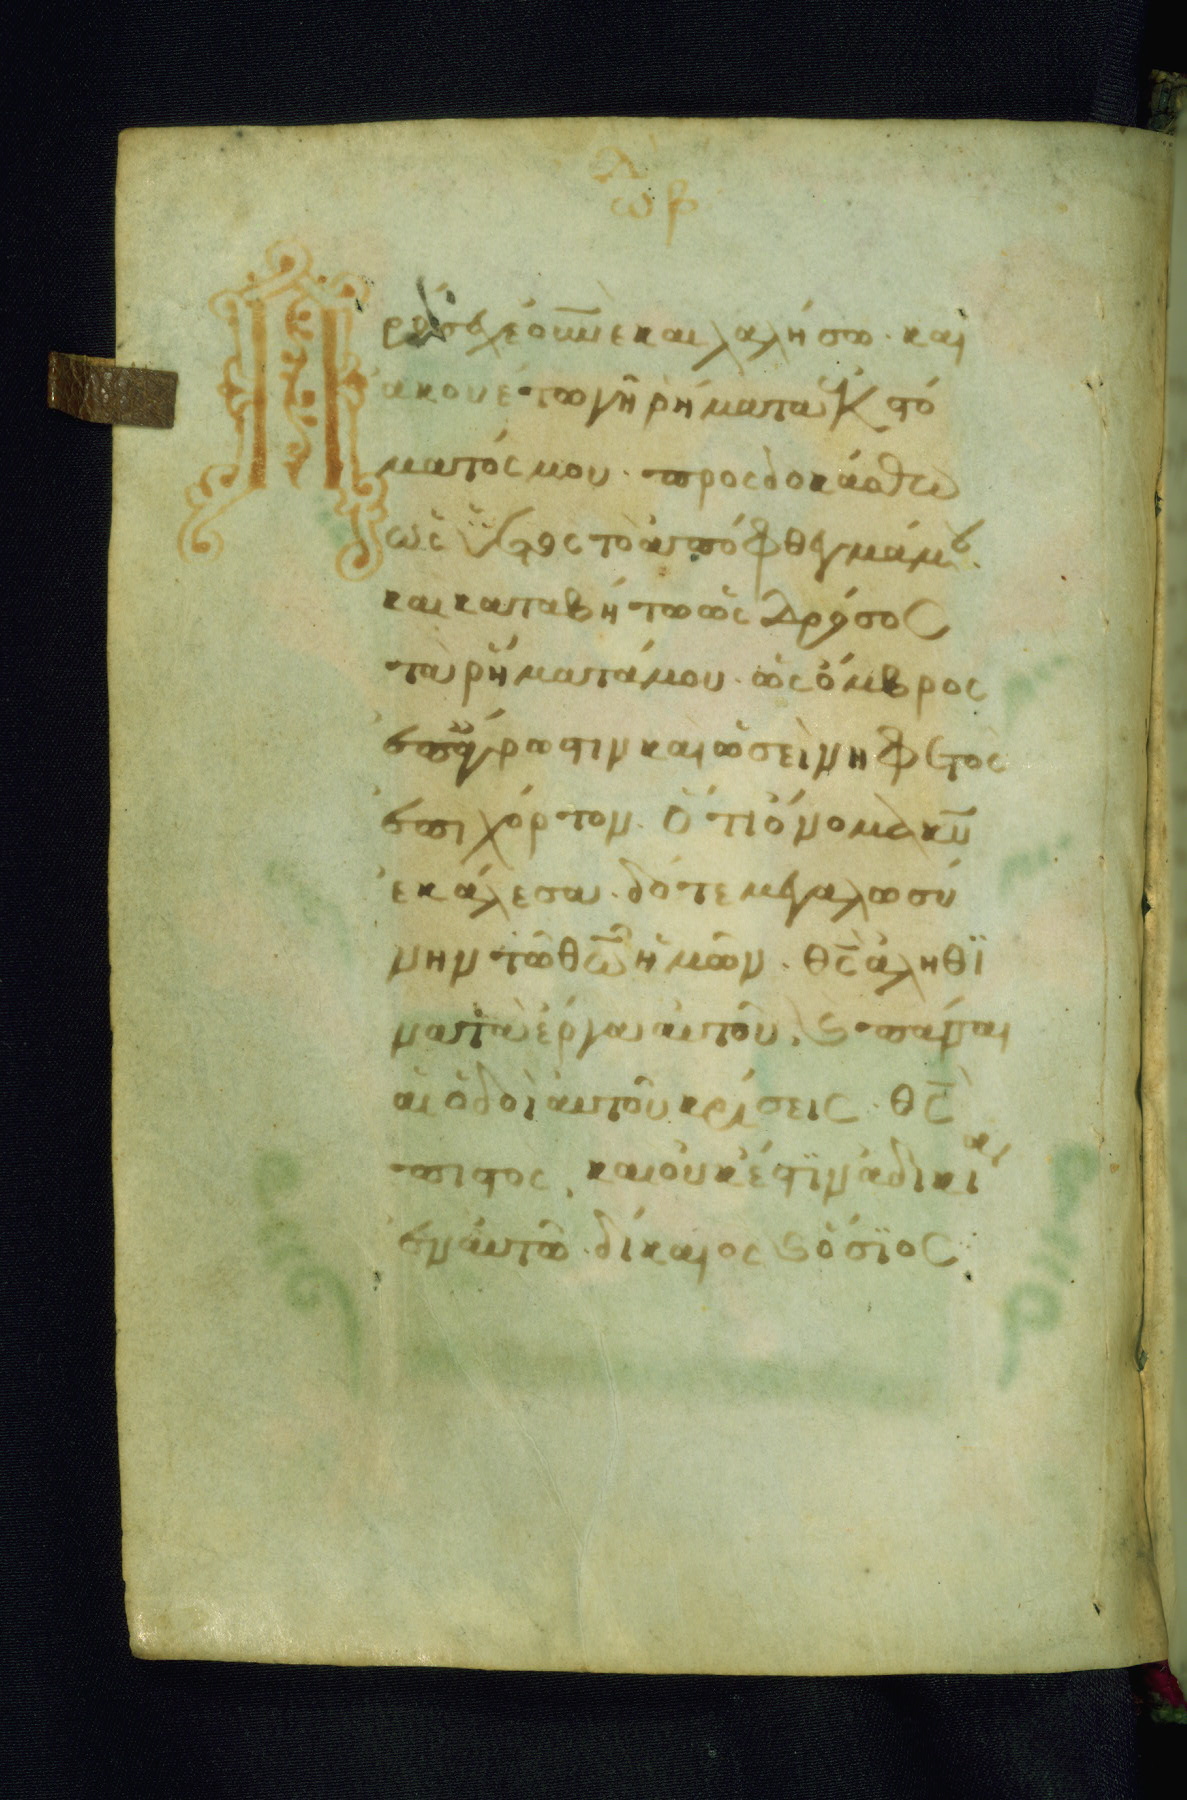 ὠδ β
Πρόσεχε οὐνὲ καὶ λαλήσω. και
ἀκουέτω γῆ ῥήματα ἐκ στό
ματός μου. προσδοκάσθω
ὡς ὑετὸς τὸ ἀπόφθεγμά μου.
και καταβήτω ὡς δρόσος
τὰ ῥήματά μου. ὡς ὄμβρος
ἐπ ἄγρωστιν και ὡσεὶ νηφετὸς
ἐπι χόρτον. ὅτι ὄνομα κυ
ἐκάλεσα. δότε μεγαλωσύ
νην τῶ θῶ ἡμῶν. θς ἀληθϊ
να τὰ ἔργα αὐτοῦ, καὶ πᾶσαι
αἱ ὁδοὶ αὐτοῦ κρίσεις. θς
πιστος, και οὐκ ἔστϊν ἀδικία
ἐν αὐτῶ. δίκαιος καὶ ὅσϊος